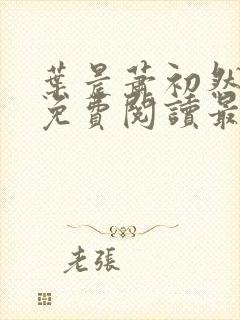 葉景蕭初然
免費閱讀最
老張